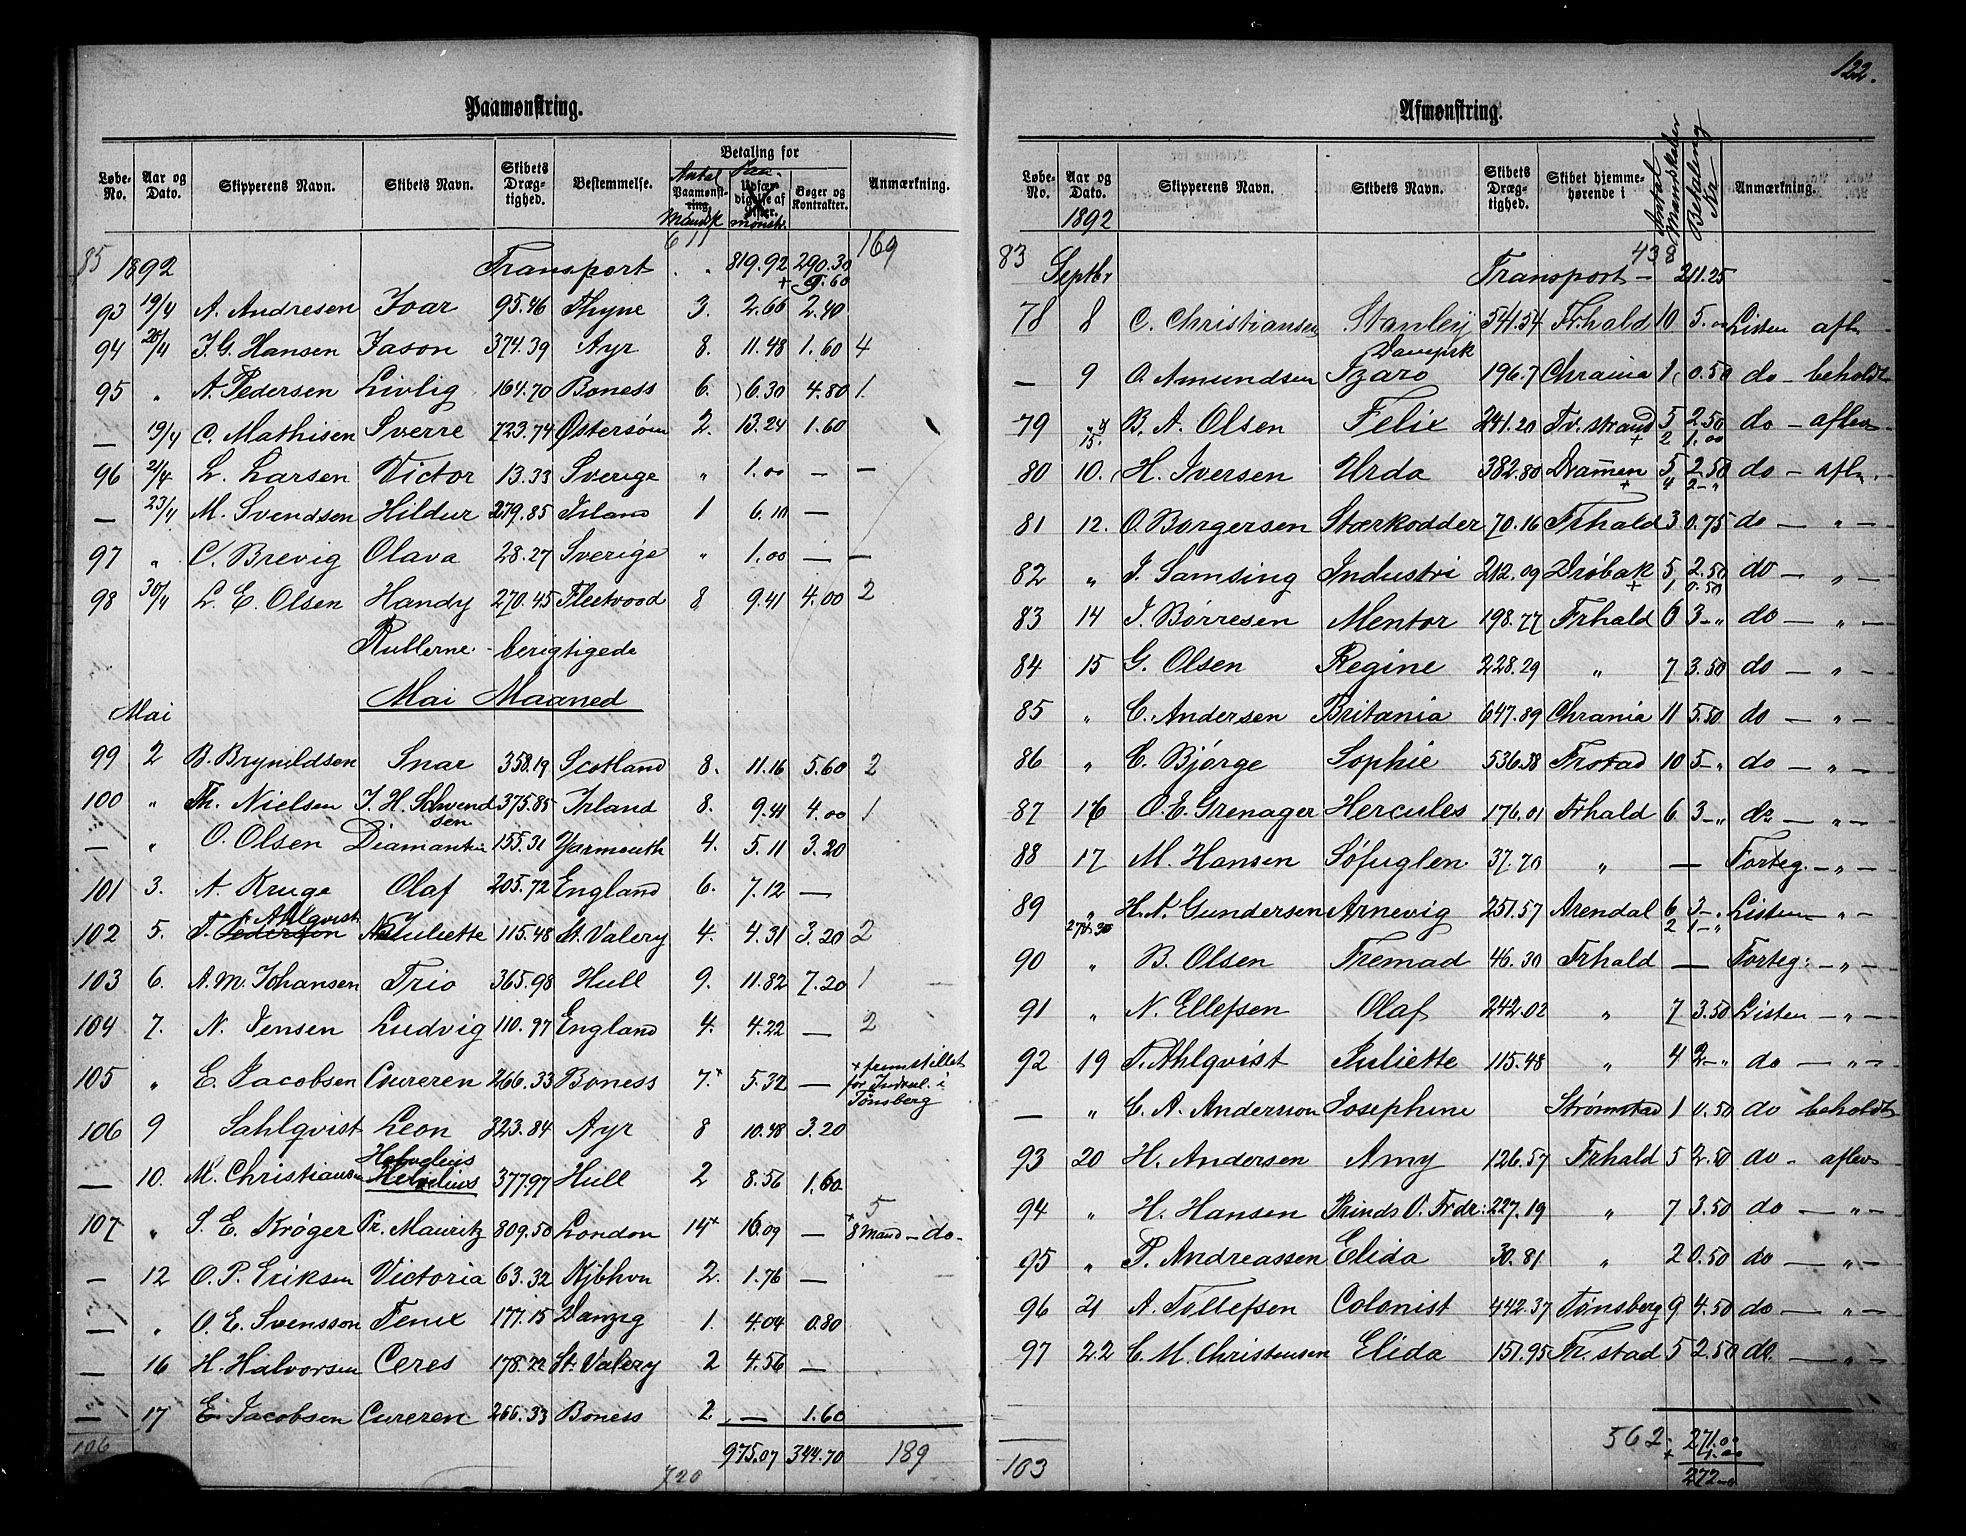 Paamønstring.
Løbe-No. | Aar og Dato. | Skipperens Navn. | Skibets Navn. | Skibets Dræg-tighed. | Bestemmelse. | Betaling for | Antal Paamønst-ring Mandsk | Paa-mønstr. Udfær-digelse af Lister. | Bøger og Kontrakter. | Anmærkning.
85 1892 Transport 611 " 819.92 290.30 169
+ 9.60
93 19/4 A. Andresen Ivar 95.46 Thyne 3. 2.66 2.40
94 20/4 J. G. Hansen Jason 374.39 Ayr 8. 11.48 1.60 4
95 " A. Pedersen Livlig 164.70 Boness 6. 6.30 4.80 1.
— 19/4 C. Mathisen Sverre 723.74 Østersøen 2. 13.24 1.60
96 21/4 L. Larsen Victor 13.33 Sverige " 1.00 — —
— 23/4 M. Svendsen Hildur 279.85 Irland 1 6.10 —
97 " C. Brevig Olava 28.27 Sverige " 1.00 — —
98 30/4 L. E. Olsen Handy 270.45 Fleetwood 8 9.41 4.00 2
Rullerne berigtigede
Mai Maaned
Mai
99 2 B. Brynildsen Snar 358.19 Scotland 8. 11.16 5.60 2
100 " Th. Nielsen J. H. Schwendsen 375.85 Irland 8. 9.41 4.00 1
— " O. Olsen Diamanten 155.31 Yarmouth 4. 5.11 3.20
101 3. A. Kruge Olaf 205.72 England 6. 7.12 —
102 5. T. Pederson Ahlqvist Juliette 115.48 St. Valery 4. 4.31 3.20 2
103 6. A. M. Johansen Trio 365.98 Hull 9. 11.82 7.20 1
104 7. N. Jensen Ludvig 110.97 England 4. 4.22 — 2
105 " E. Jacobsen Cureren 266.33 Boness 7.+ 5.32 — + fremstillet for Indrul. i Tønsberg
106 9 Sahlqvist Leon 323.84 Ayr 8 10.48 3.20
— 10. M. Christiansen Hevelius 377.97 Hull 2 8.56 1.60
107 " S. E. Krøger Pr. Mauritz 809.50 London 14+ 16.09 — 5 + 8 Mand — do —
— 12 O. P. Eriksen Victoria 63.32 Kjbhvn 2. 1.76 —
— " O. E. Svensson Fenix 177.15 Danzig 1. 4.04 0.80
— 16 H. Halvorsen Ceres 178.22 St. Valery 2 4.56 —
— 17 E. Jacobsen Cureren 266.33 Boness 2 — 1.60
106 975.07 344.70 189
720
122.
Afmønstring.
Løbe-No. | Aar og Dato. | Skipperens Navn. | Skibets Navn. | Skibets Dræg-tighed. | Skibet hjemme-hørende i | Antal Mandskaber | Betaling Kr | Anmærkning.
1892
83 Septbr Transport — 438 211.25
78 8 C. Christiansen Stanley 541.54 Frhald 10 5.00 Listen afl.
— 9 O. Amundsen Dampsk Izaro 196.7 Chrania 1 0.50 do — beholdt
79 " B. A. Olsen Felix 241.20 Tv.strand 5 2.50 do — aflev
15. + 2 1.00
80 10. H. Iversen Urda 382.80 Drammen 5 2.50 do — afl.
+ 4 2 — "
81 12. O. Borgersen Stærkodder 70.16 Frhald 3 0.75 do — " —
82 " J. Samsing Industri 212.09 Drøbak 5 2.50 do — " —
+ 1 0.50
83 14 J. Børresen Mentor 198.77 Frhald 6 3 — " do — " —
84 15 G. Olsen Regine 228.29 " 7 3.50 do — " —
85 " C. Andersen Britania 647.89 Chrania 11 5.50 do — " —
86 " C. Bjørge Sophie 536.38 Frstad 10 5 — " do — " —
87 16 O. E. Grenager Hercules 176.01 Frhald 6 3 — " do — " —
88 17 M. Hansen Søfuglen 37.70 " — Forteg. — " —
89 " H. A. Gundersen Arnevig 251.57 Arendal 6 3 — " Listen — " —
2 1 — "
90 " B. Olsen Fremad 46.30 Frhald — Forteg: — " —
91 " N. Ellefsen Olaf 242.02 " 7 3.50 Listen — " —
92 19 T. Ahlqvist Juliette 115.48 " 4 2 — " do — " —
— " C. A. Andersson Josephine Strømstad 1 0.50 do beholdt
93 20 H. Andersen Amy 126.57 Frhald 5 2.50 do — aflev
94 " H. Hansen Prinds O. Frdr: 227.19 " 7 3.50 do — " —
95 " P. Andreassen Elida 30.81 " 2 0.50 do — " —
96 21 A. Tollefsen Colonist 442.37 Tønsberg 9 4.50 do — " —
97 22 C. M. Christensen Elida 151.95 Fr.stad 5 2.50 do — " —
562 271.00
+ 1.00
103 272 — "